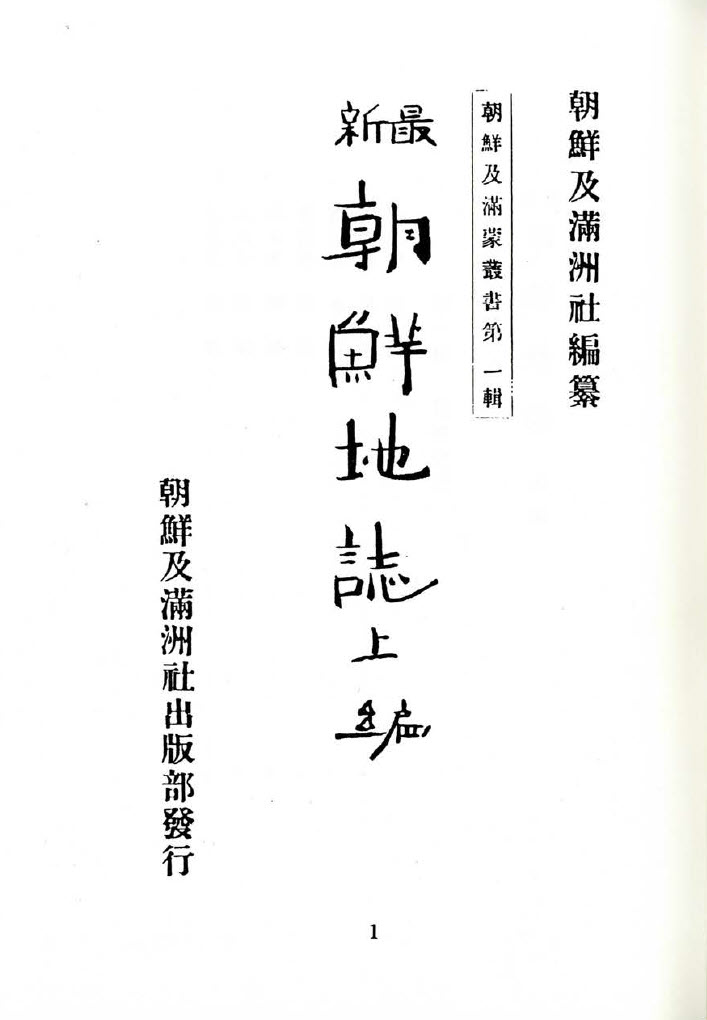 朝鮮及滿洲社編纂
朝鮮及滿蒙叢書第一輯
最新
朝鮮地誌上編
朝鮮及滿洲社出版部發行
1